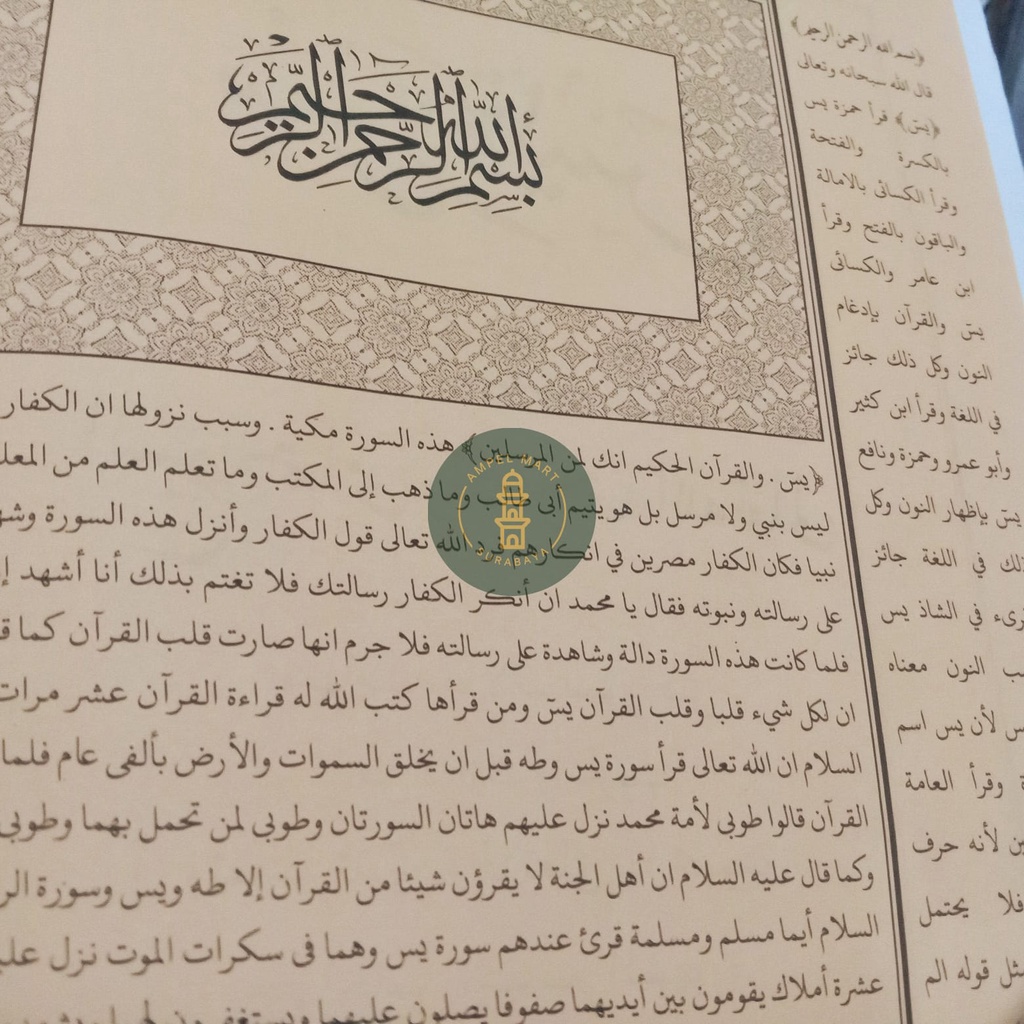 بسم الله الرحمن الرحيم
﴿يسۤ . والقرآن الحكيم انك لمن المرسلين﴾ هذه السورة مكية . وسبب نزولها ان الكفار
ليس بنبي ولا مرسل بل هو يتيم أبى طالب وما ذهب إلى المكتب وما تعلم العلم من
نبيا فكان الكفار مصرين في انكارهم فرد الله تعالى قول الكفار وأنزل هذه السورة
على رسالته ونبوته فقال يا محمد ان أنكر الكفار رسالتك فلا تغتم بذلك أنا أشهد
فلما كانت هذه السورة دالة وشاهدة على رسالته فلا جرم انها صارت قلب القرآن كما
ان لكل شيء قلبا وقلب القرآن يسۤ ومن قرأها كتب الله له قراءة القرآن عشر مرات
السلام ان الله تعالى قرأ سورة يس وطه قبل ان يخلق السموات والأرض بألفى عام فلما
القرآن قالوا طوبى لأمة محمد نزل عليهم هاتان السورتان وطوبى لمن تحمل بهما وطوبى
وكما قال عليه السلام ان أهل الجنة لا يقرؤن شيئا من القرآن إلا طه ويس وسورة
السلام أيما مسلم ومسلمة قرئ عندهم سورة يس وهما فى سكرات الموت نزل
عشرة أملاك يقومون بين أيديهما صفوفا يصلون عليهما ويستغفرون
﴿بسم الله الرحمن الرحيم﴾
قال الله سبحانه وتعالى
﴿يسۤ﴾ قرأ حمزة يس
بالكسرة والفتحة
وقرأ الكسائى بالامالة
والباقون بالفتح وقرأ
ابن عامر والكسائى
يسۤ والقرآن بإدغام
النون وكل ذلك جائز
في اللغة وقرأ ابن كثير
وأبو عمرو وحمزة ونافع
يسۤ بإظهار النون وكل
ذلك في اللغة جائز
في الشاذ يس
النون معناه
لأن يس اسم
وقرأ العامة
لأنه حرف
فلا يحتمل
مثل قوله الم
AMPEL MART
SURABAYA